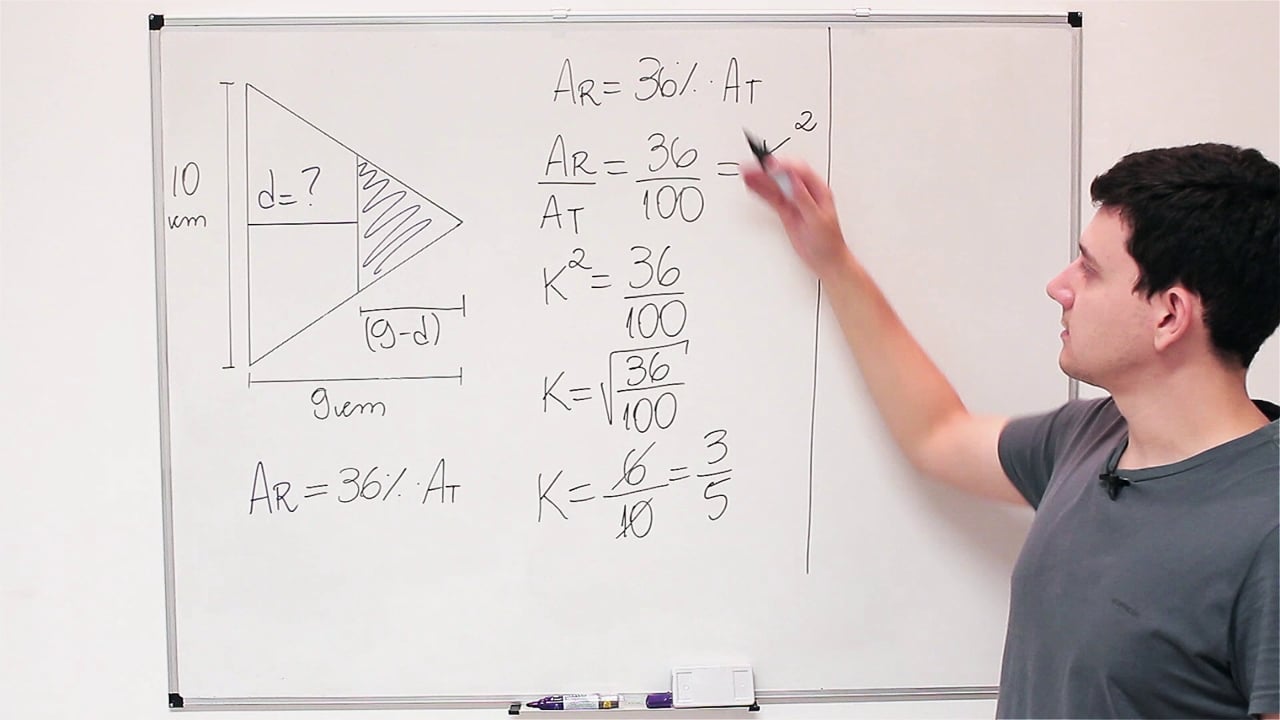 10
cm
d=?
(9-d)
9cm
AR=36%·AT
AR=36%·AT
AR/AT=36/100= 2
K²=36/100
K=√36/100
K=6/10=3/5